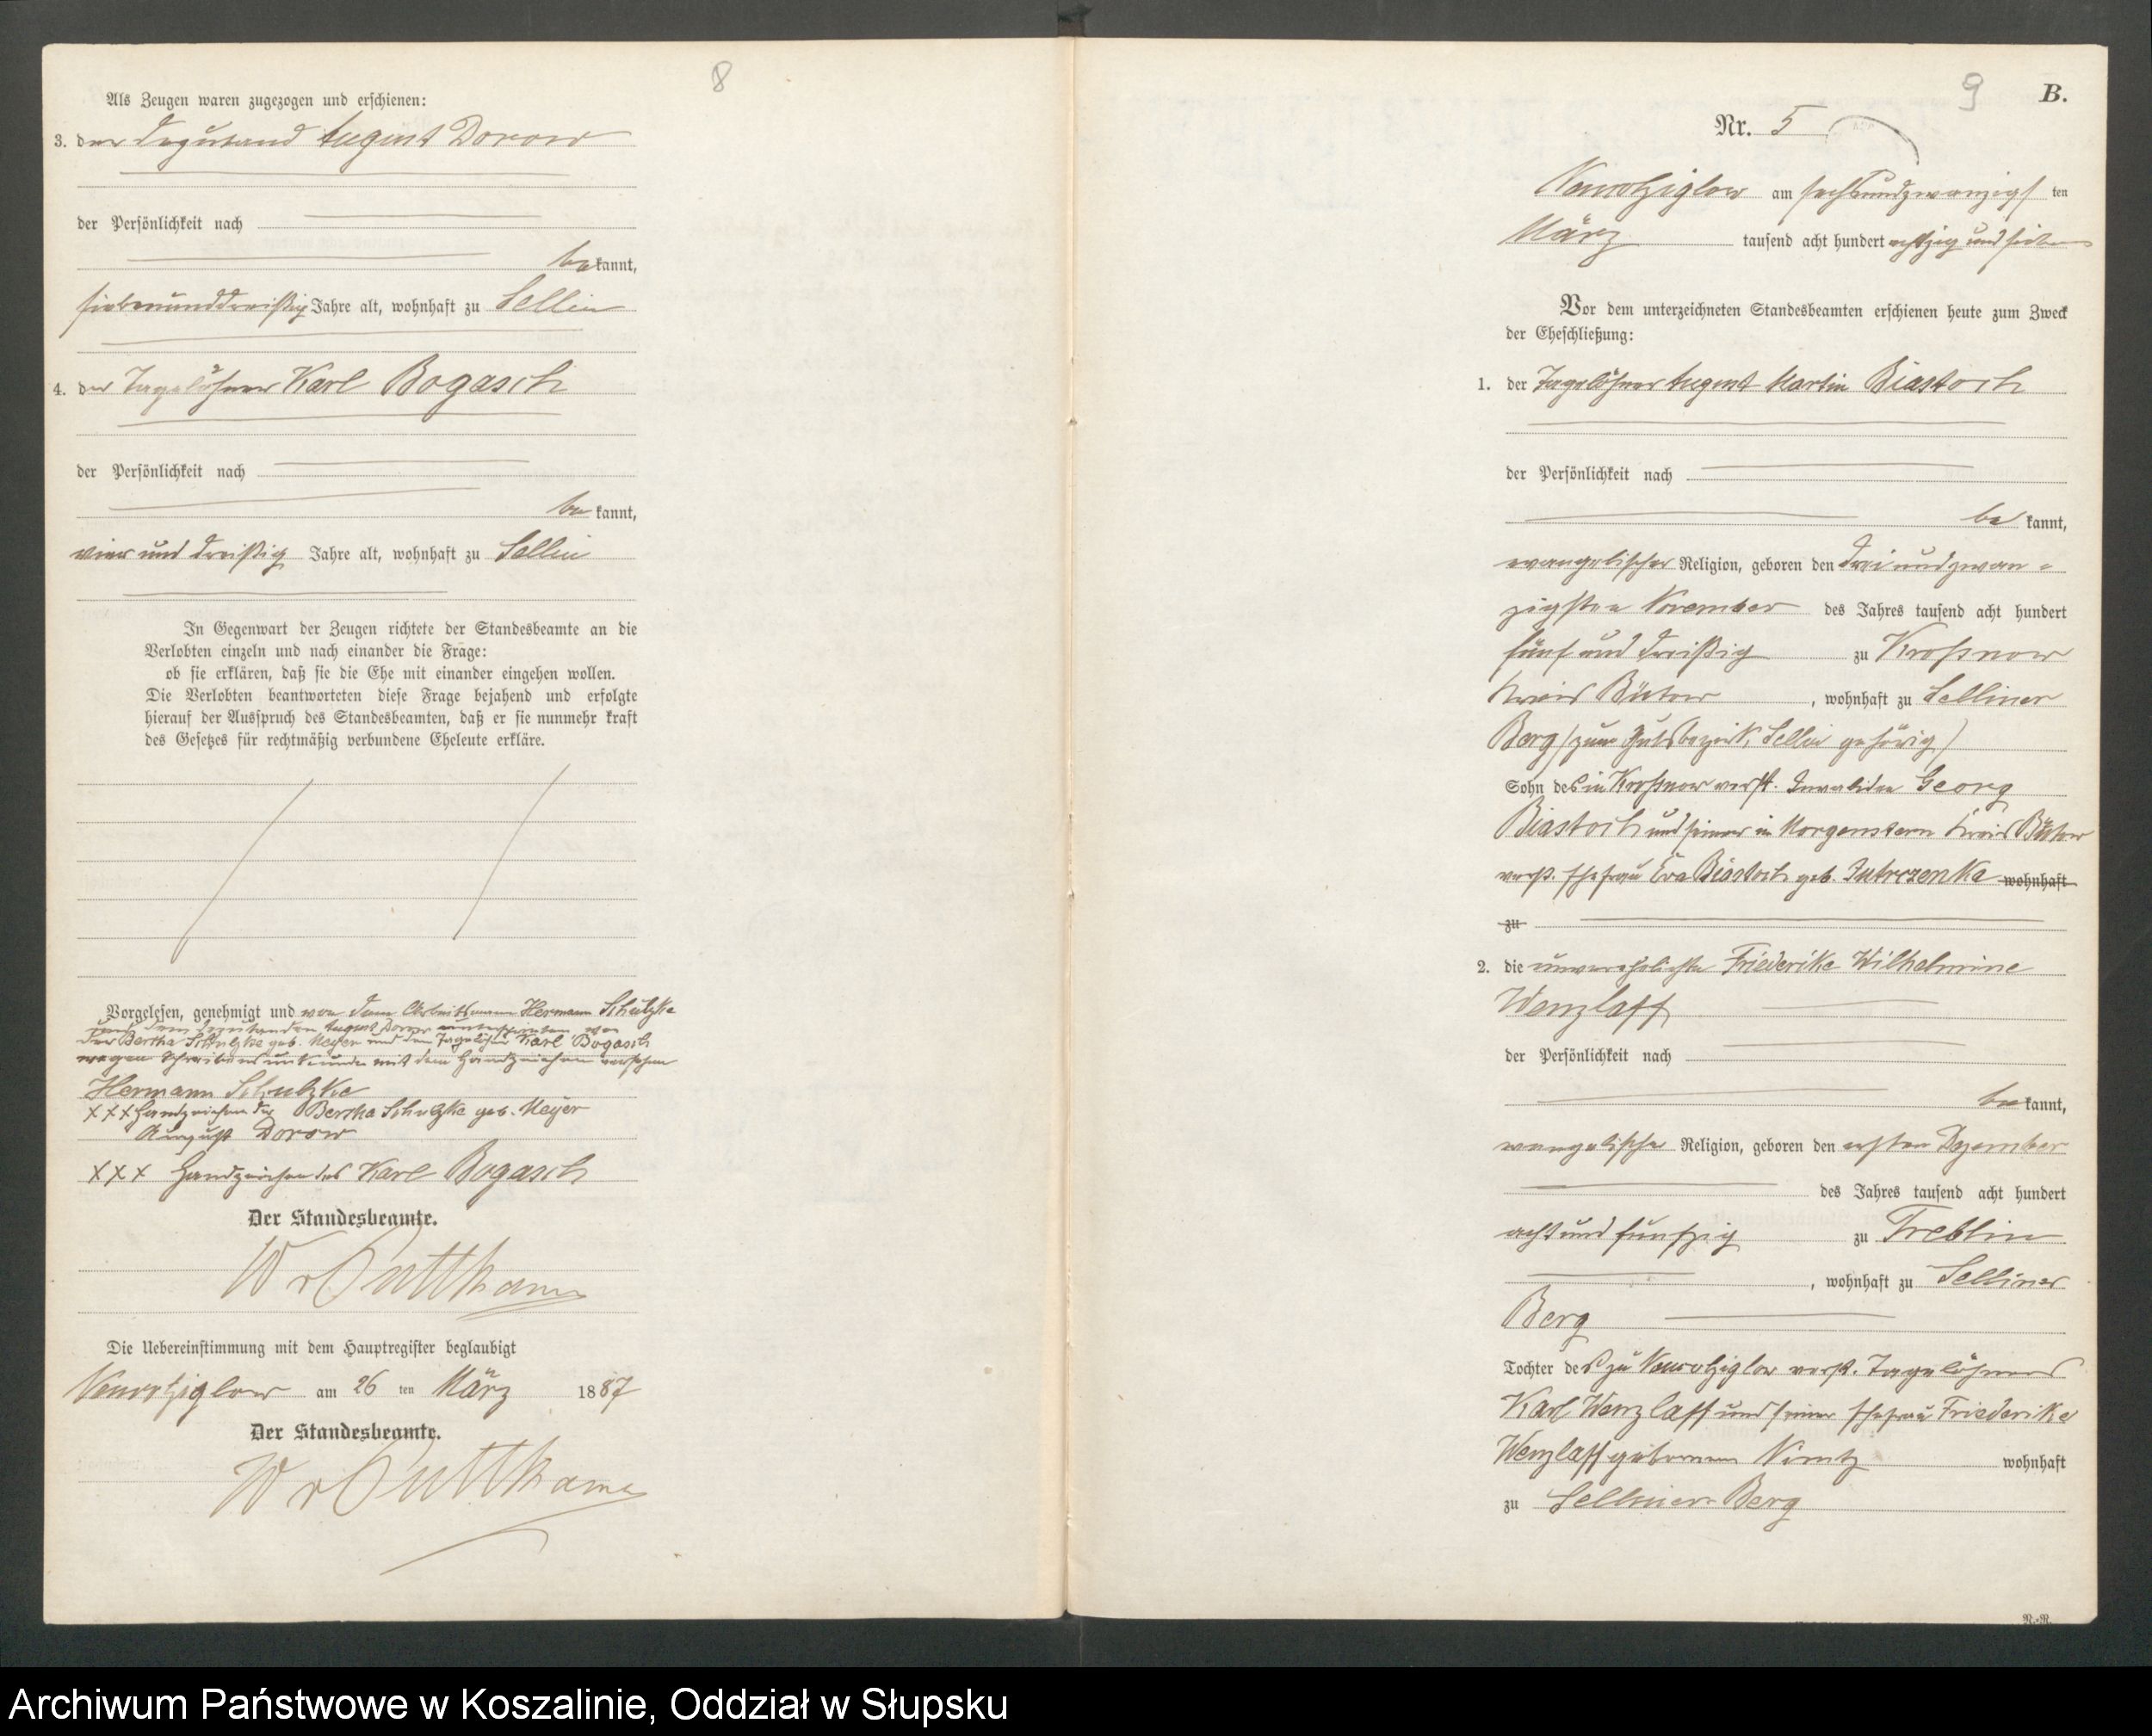 8
Als Zeugen waren zugezogen und erschienen:
3. der Deputand August Dorow
der Persönlichkeit nach
bekannt,
siebenunddreißig Jahre alt, wohnhaft zu Sellin
4. der Tagelöhner Karl Bogasch
der Persönlichkeit nach
be kannt,
vier und dreißig Jahre alt, wohnhaft zu Sellin
In Gegenwart der Zeugen richtete der Standesbeamte an die
Verlobten einzeln und nach einander die Frage:
ob sie erklären, daß sie die Ehe mit einander eingehen wollen.
Die Verlobten beantworteten diese Frage bejahend und erfolgte
hierauf der Ausspruch des Standesbeamten, daß er sie nunmehr kraft
des Gesetzes für rechtmäßig verbundene Eheleute erkläre.
Vorgelesen, genehmigt und von dem Arbeitsmann Hermann Schulzke
und dem Deputanden August Dorow unterschrieben von
der Bertha Schulzke geb. Meyer und dem Tagelöhner Karl Bogasch
wegen Schreibensunkunde mit dem Handzeichen versehen
Hermann Schulzke
XXX Handzeichen der Bertha Schulzke geb. Meyer
August Dorow
XXX Handzeichen des Karl Bogasch
Der Standesbeamte.
W v Puttkamer
Die Uebereinstimmung mit dem Hauptregister beglaubigt
am 26 ten März 1887
Der Standesbeamte.
W v Puttkamer
9
B.
Nr. 5
am sechsundzwanzigs ten
März tausend acht hundert achtzig und sieben
Vor dem unterzeichneten Standesbeamten erschienen heute zum Zweck
der Eheschließung:
1. der Tagelöhner August Martin Biastoch
der Persönlichkeit nach
be kannt,
evangelischer Religion, geboren den drei und zwan-
zigsten November des Jahres tausend acht hundert
fünf und dreißig zu Kroßnow
Kreis Bütow, wohnhaft zu Selliner
Berg (zum Gutsbezirk Sellin gehörig)
Sohn des in Kroßnow verst. Invaliden Georg
Biastoch und seiner in Morgenstern Kreis Bütow
verst. Ehefrau Eva Biastoch geb. Jutrczenka wohnhaft
zu
2. die unverehelichte Friederike Wilhelmine
Wenzlaff
der Persönlichkeit nach
bekannt,
evangelischer Religion, geboren den ersten Dezember
des Jahres tausend acht hundert
acht und fünfzig zu Treblin
, wohnhaft zu Selliner
Berg
Tochter des zu verst. Tagelöhners
Karl Wenzlaff und seiner Ehefrau Friederike
Wenzlaff geborenen Nimtz wohnhaft
zu Selliner Berg
N.-N.
Archiwum Państwowe w Koszalinie, Oddział w Słupsku